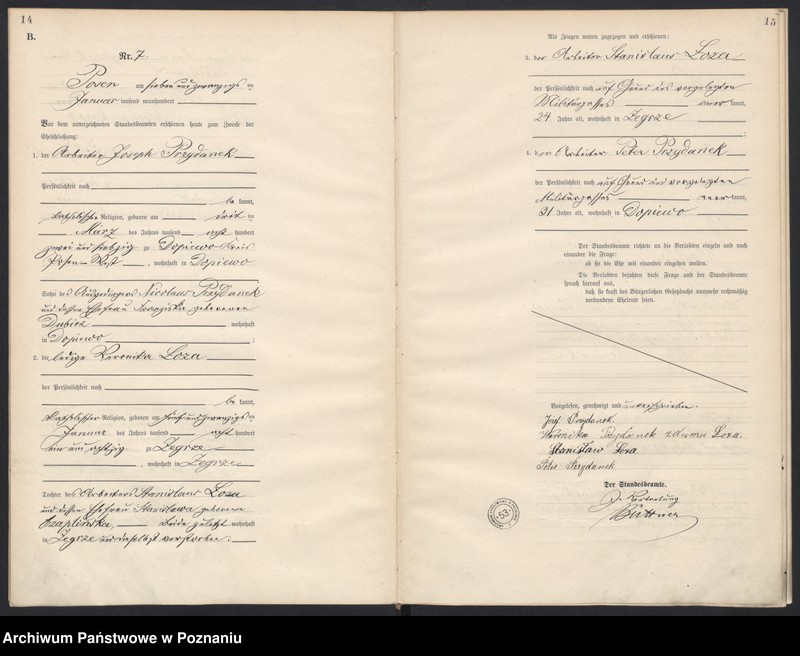 14
B.
Nr. 7.
Posen am sieben und zwanzigs ten
Januar tausend neunhundert
Vor dem unterzeichneten Standesbeamten erschienen heute zum Zwecke der
Eheschließung:
1. der Arbeiter Joseph Przydanek
der Persönlichkeit nach
be kannt,
katholische Religion, geboren am drit ten
März des Jahres tausend acht hundert
zwei und siebzig zu Dopiewo Kreis
Posen-West, wohnhaft in Dopiewo
Sohn des Auszüglers Nicolaus Przydanek
und dessen Ehefrau geborenen
Dubisz wohnhaft
in Dopiewo;
2. die ledige Veronika Loza
der Persönlichkeit nach
be kannt,
katholischer Religion, geboren am fünf und zwanzigs ten
Januar des Jahres tausend acht hundert
ein und achtzig zu Zegrze
, wohnhaft in Zegrze
Tochter des Arbeiters Stanislaus Loza
und dessen Ehefrau Stanislawa geborenen
Czaplinska, Beide zuletzt wohnhaft
in Zegrze und daselbst verstorben.
15
Als Zeugen waren zugezogen und erschienen:
3. der Arbeiter Stanislaus Loza
der Persönlichkeit nach auf Grund des vorgelegten
Militärpasses aner kannt,
24 Jahre alt, wohnhaft in Zegrze
;
4. der Arbeiter Peter Przydanek
der Persönlichkeit nach auf Grund des vorgelegten
Militärpasses aner kannt,
31 Jahre alt, wohnhaft in Dopiewo
Der Standesbeamte richtete an die Verlobten einzeln und nach
einander die Frage:
ob sie die Ehe mit einander eingehen wollen.
Die Verlobten bejahten diese Frage und der Standesbeamte
sprach hierauf aus,
daß sie kraft des Bürgerlichen Gesetzbuchs nunmehr rechtmäßig
verbundene Eheleute seien.
Vorgelesen, genehmigt und unterschrieben.
Józef Przydanek.
Weronika Przydanek z domu Loza.
Stanisław Loza
Peter Przydanek.
Der Standesbeamte.
In Vertretung
Büttner
53
Archiwum Państwowe w Poznaniu